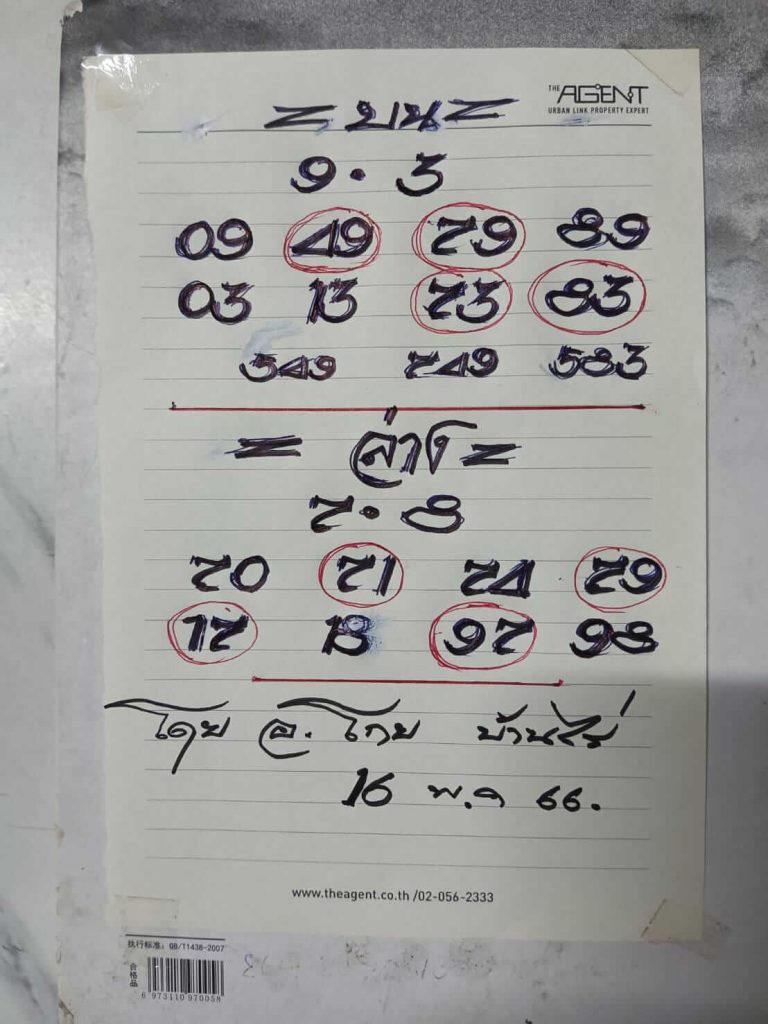 THE AGENT
URBAN LINK PROPERTY EXPERT
= บน =
9 · 3
09 49 79 89
03 13 73 83
549 749 583
= ล่าง =
7 · 8
70 71 74 79
17 18 97 98
โดย อ. โกย บ้านไร่
16 พ.ค 66.
www.theagent.co.th /02-056-2333
执行标准: QB/T1438-2007
合格品
6 973110 970058